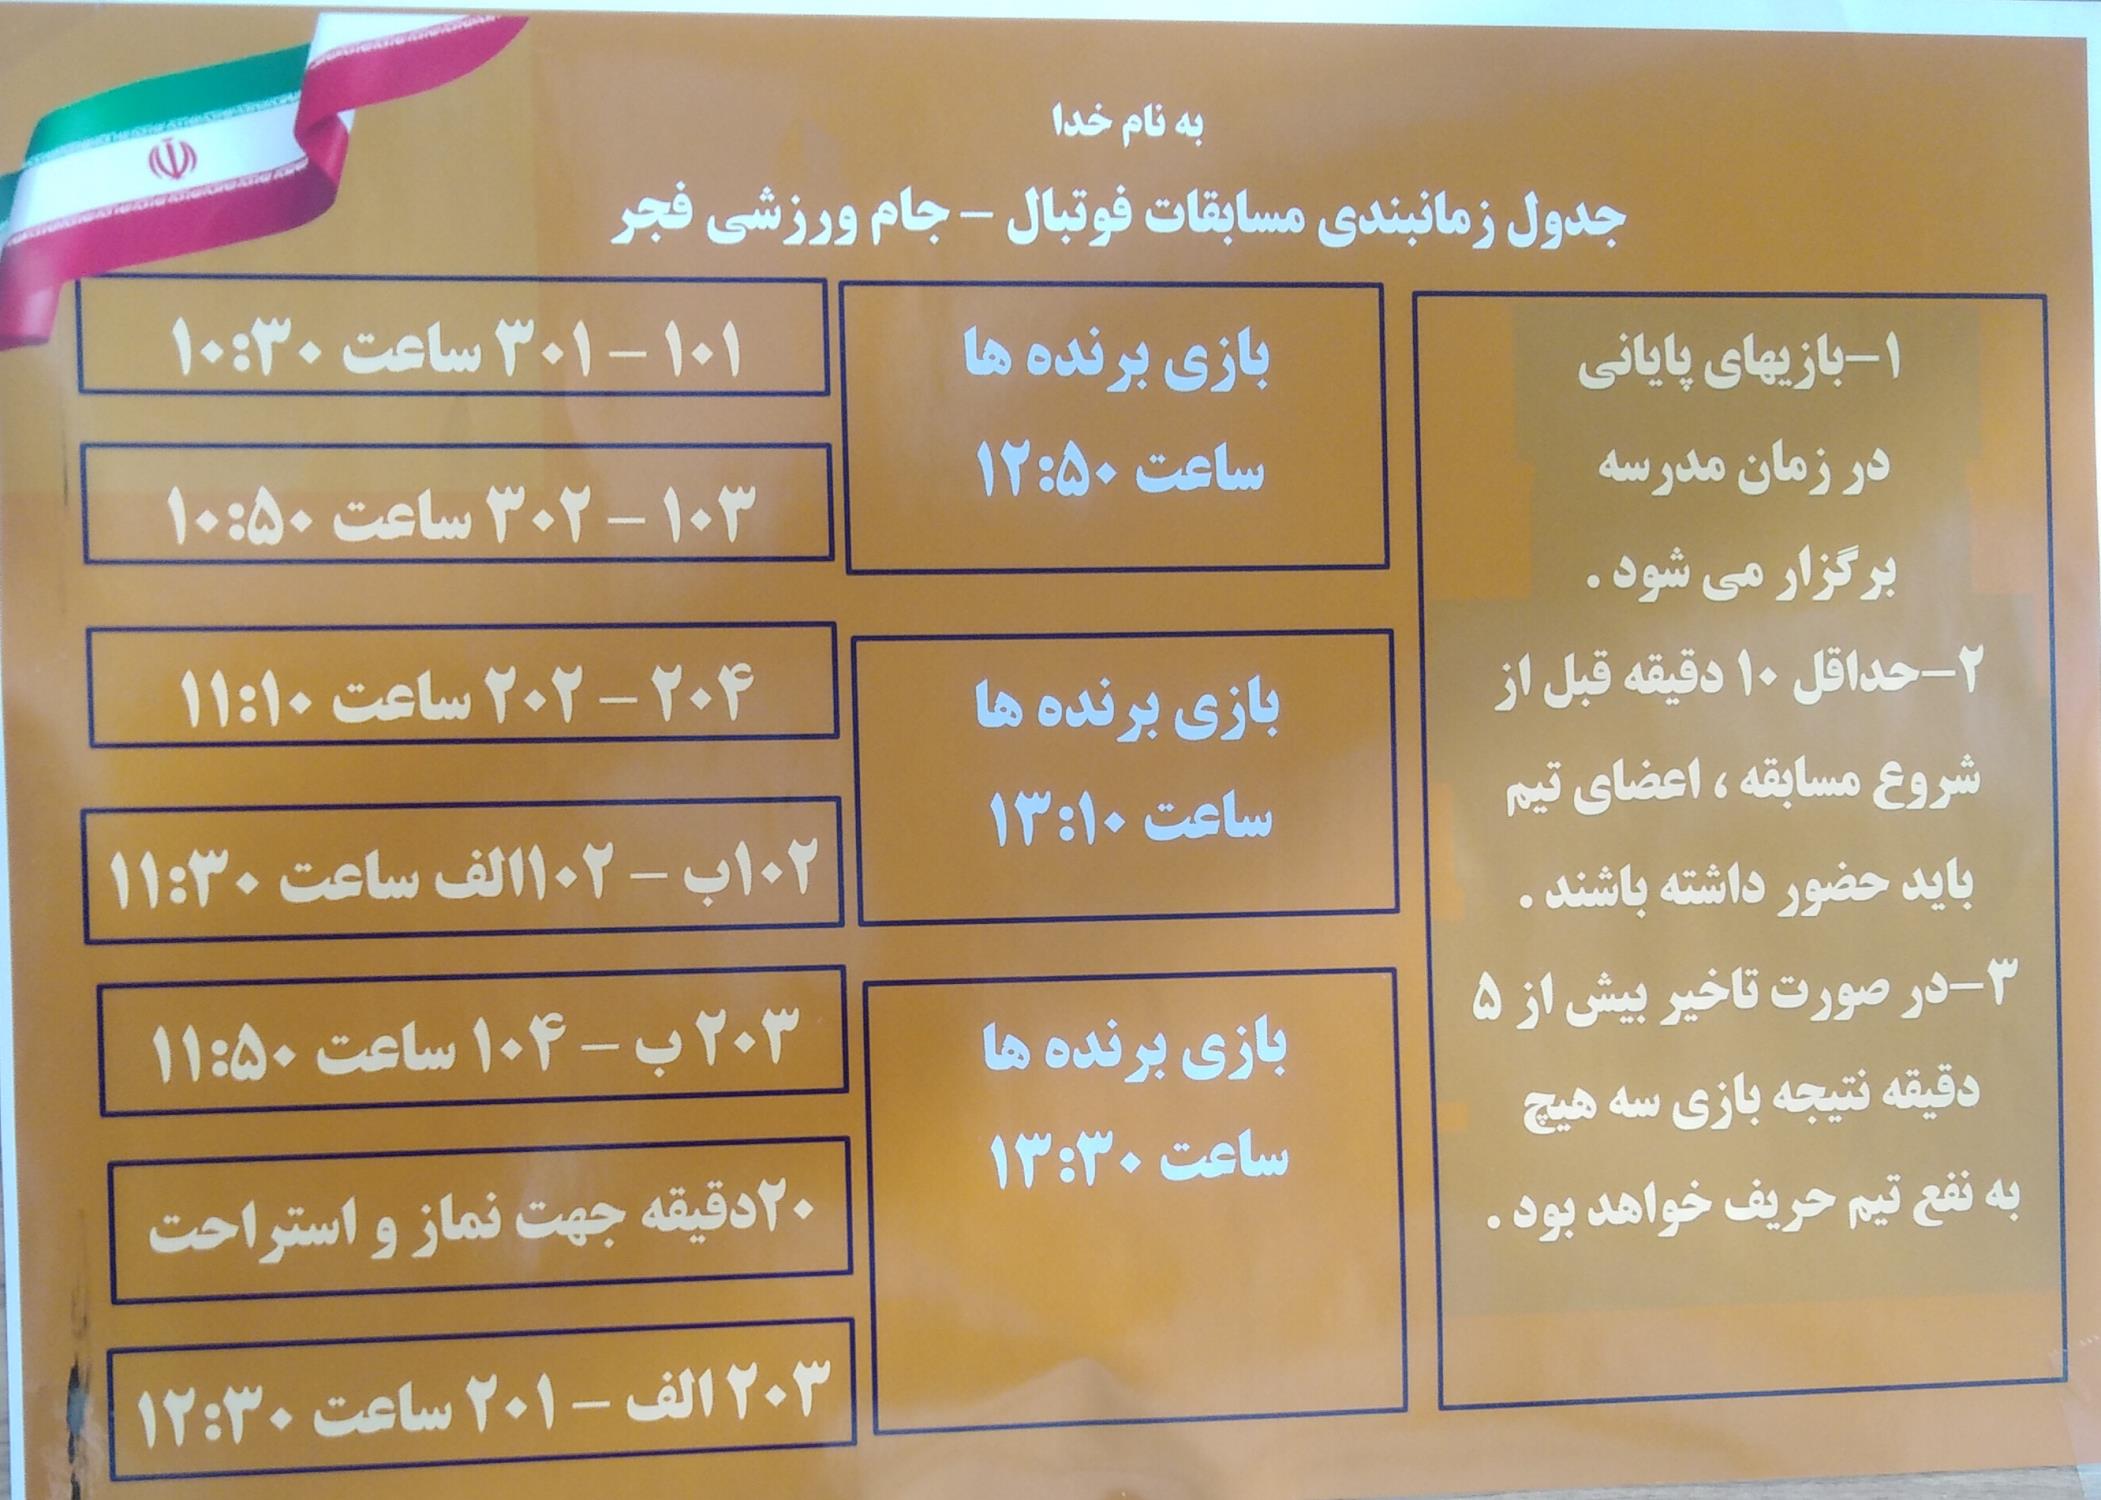 به نام خدا
جدول زمانبندی مسابقات فوتبال – جام ورزشی فجر
۱–بازیهای پایانی
در زمان مدرسه
برگزار می شود .
۲–حداقل ۱۰ دقیقه قبل از
شروع مسابقه ، اعضای تیم
باید حضور داشته باشند .
۳–در صورت تاخیر بیش از ۵
دقیقه نتیجه بازی سه هیچ
به نفع تیم حریف خواهد بود .
بازی برنده ها
ساعت ۱۲:۵۰
بازی برنده ها
ساعت ۱۳:۱۰
بازی برنده ها
ساعت ۱۳:۳۰
۱۰۱ – ۳۰۱ ساعت ۱۰:۳۰
۱۰۳ – ۳۰۲ ساعت ۱۰:۵۰
۲۰۴ – ۲۰۲ ساعت ۱۱:۱۰
۱۰۲ب – ۱۰۲الف ساعت ۱۱:۳۰
۲۰۳ ب – ۱۰۴ ساعت ۱۱:۵۰
۲۰دقیقه جهت نماز و استراحت
۲۰۳ الف – ۲۰۱ ساعت ۱۲:۳۰